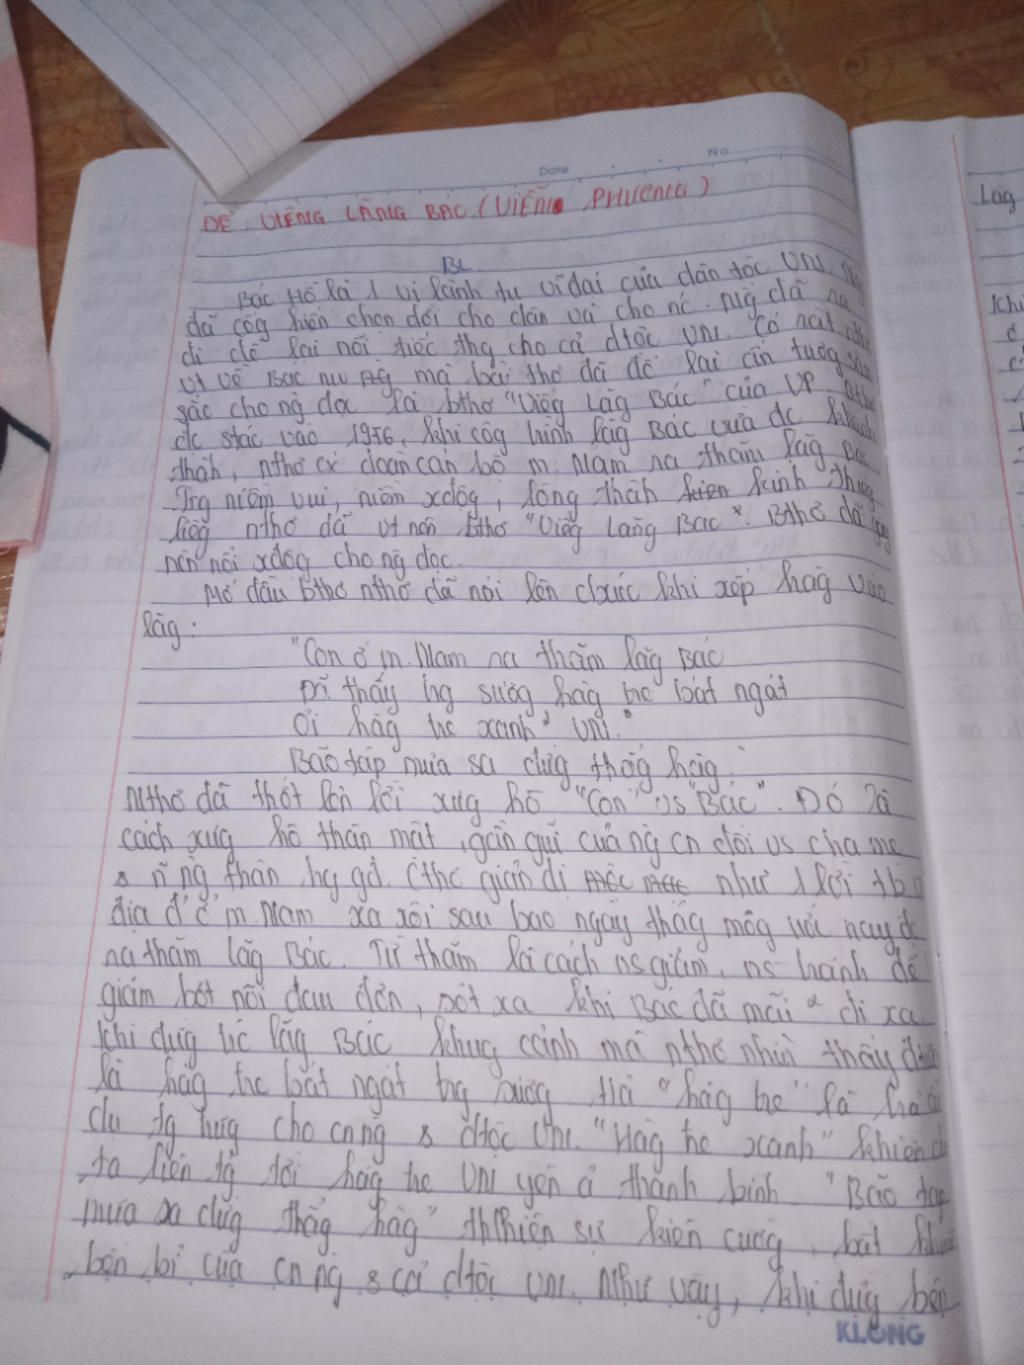 Date No
ĐỀ: VIẾNG LĂNG BÁC (VIỄN PHƯƠNG)
BL
Bác Hồ là 1 vị lãnh tụ vĩ đại của dân tộc VN.
đã cốg hiến chọn đời cho dân và cho nc. Ng đã ra
đi để lại nỗi tiếc thg cho cả dtộc VN. Có rất
vt về Bác mà bài thơ đã để lại ấn tượg sâu
sắc cho ng đọc là bthơ "Viếg Lăg Bác" của VP. Bthơ
đc stác vào 1976, khi côg trình lăg Bác vừa đc khách
thàh, nthơ cx đoàn cán bộ m. Nam ra thăm lăg Bác
Trg niềm vui, niềm xđộg, lòng thàh kiến kính
liêg nthơ đã vt nên bthơ "Viếg Lăng Bác". Bthơ đã
nên nỗi xđộg cho ng đọc.
Mở đầu bthơ nthơ đã nói lên cxúc khi xếp hàg vào
lăg:
"Con ở m. Nam ra thăm lăg Bác
Đã thấy trg sươg hàg tre bát ngát
Ôi hàg tre xanh² VN.
Bão táp mưa sa đứg thẳg hàg."
Nthơ đã thốt lên lời xưg hô "Con" vs "Bác". Đó là
cách xưg hô thân mật, gần gũi của ng cn đối vs cha mẹ
& n~ ng thân trg gđ. giản dị như 1 lời
địa ở m. Nam xa xôi sau bao ngày thág mog ước nay đc
ra thăm lăg Bác. Từ thăm là cách ns giảm, ns tránh để
giảm bớt nỗi đau đớn, xót xa khi Bác đã mãi² đi xa
Khi đứg trc lăg Bác khug cảnh mà nthơ nhìn thấy
là hàg tre bát ngát trg sươg. H/a "hàg tre" là h/a ẩn
dụ tg trưg cho cn ng & dtộc VN. "Hàg tre xanh" khiến
ta liên tg tới hàg tre VN yên ả thanh bình "Bão táp
mưa sa đứg thẳg hàg" thhiện sự kiên cườg, bất
bền bỉ của cn ng & cả dtộc VN. Như vậy, khi đứg bên
KLONG
Lăg
Khi